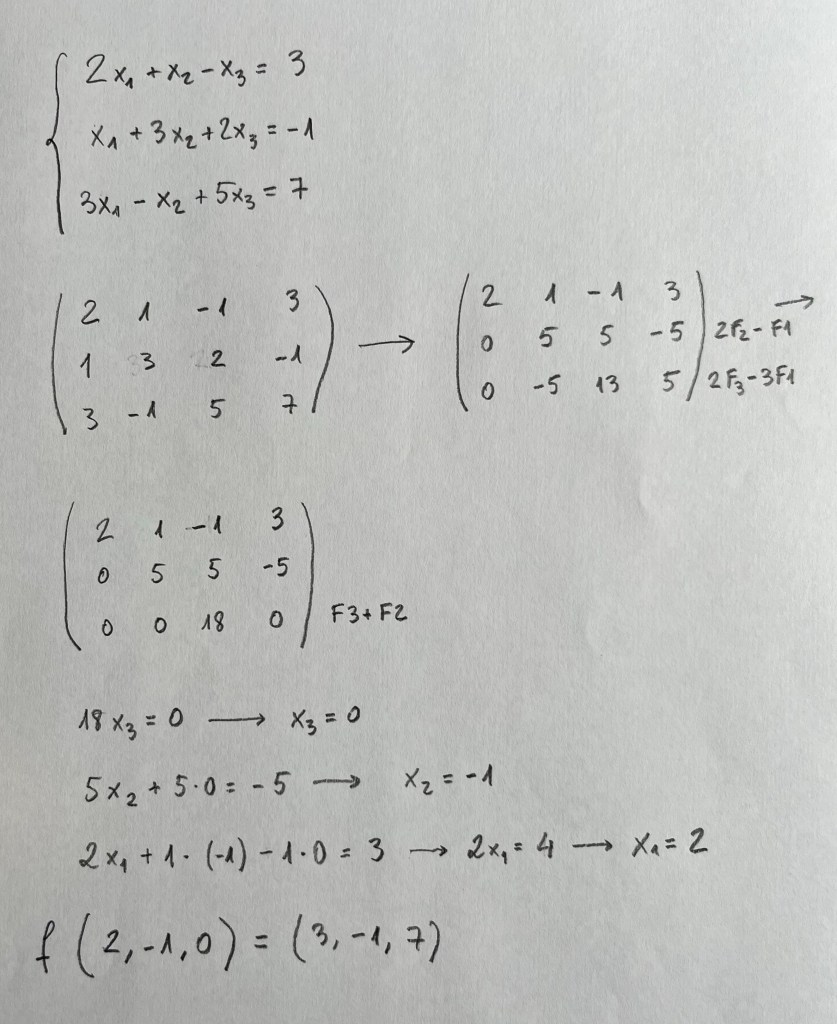 2x₁ + x₂ - x₃ = 3
x₁ + 3x₂ + 2x₃ = -1
3x₁ - x₂ + 5x₃ = 7
2 1 -1 3
1 3 2 -1
3 -1 5 7
→
2 1 -1 3
0 5 5 -5 2F₂ - F1
0 -5 13 5 2F₃ - 3F1
→
2 1 -1 3
0 5 5 -5
0 0 18 0 F3 + F2
18x₃ = 0 → x₃ = 0
5x₂ + 5·0 = -5 → x₂ = -1
2x₁ + 1·(-1) - 1·0 = 3 → 2x₁ = 4 → x₁ = 2
f (2, -1, 0) = (3, -1, 7)